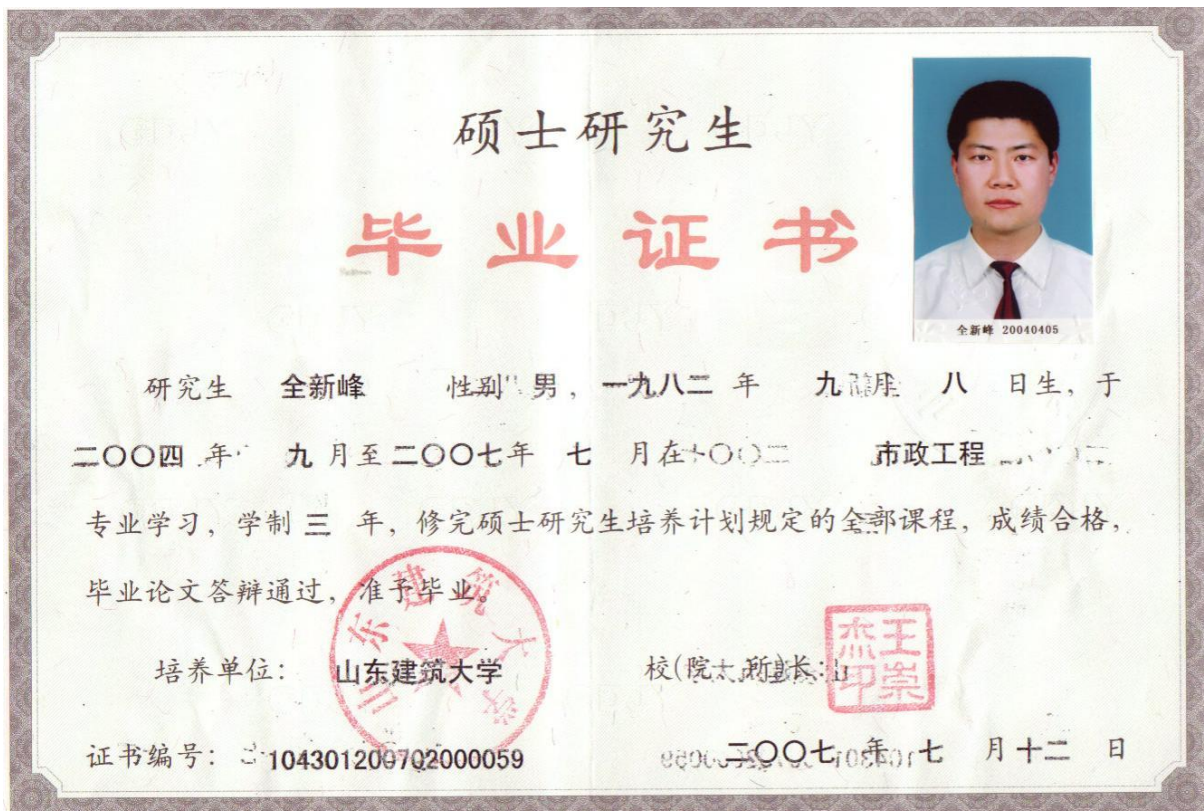 硕士研究生
毕业证书
全新峰 20040405
研究生 全新峰 性别 男，一九八二 年 九 月 八 日生，于
二〇〇四 年 九 月至 二〇〇七 年 七 月在 市政工程
专业学习，学制 三 年，修完硕士研究生培养计划规定的全部课程，成绩合格，
毕业论文答辩通过，准予毕业。
山东建筑大学
培养单位： 山东建筑大学 校(院、所)长：
王崇杰印
证书编号： 104301200702000059 二〇〇七 年 七 月 十二 日